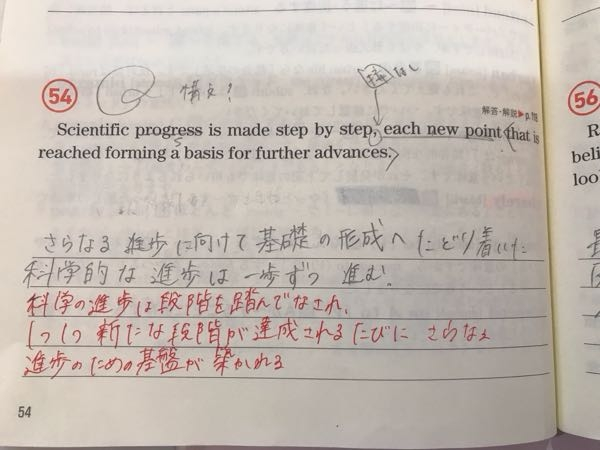 54 構文?
接 なし
解答・解説▶p.118
Scientific progress is made step by step, each new point that is
reached forming a basis for further advances.
S
さらなる 進歩に向けて 基礎の形成へ たどり着いた
科学的な 進歩は 一歩ずつ 進む.
科学の進歩は段階を踏んでなされ、
1つ1つ 新たな段階が達成されるたびに さらなる
進歩のための基盤が 築かれる
54
56
R
beli
loo